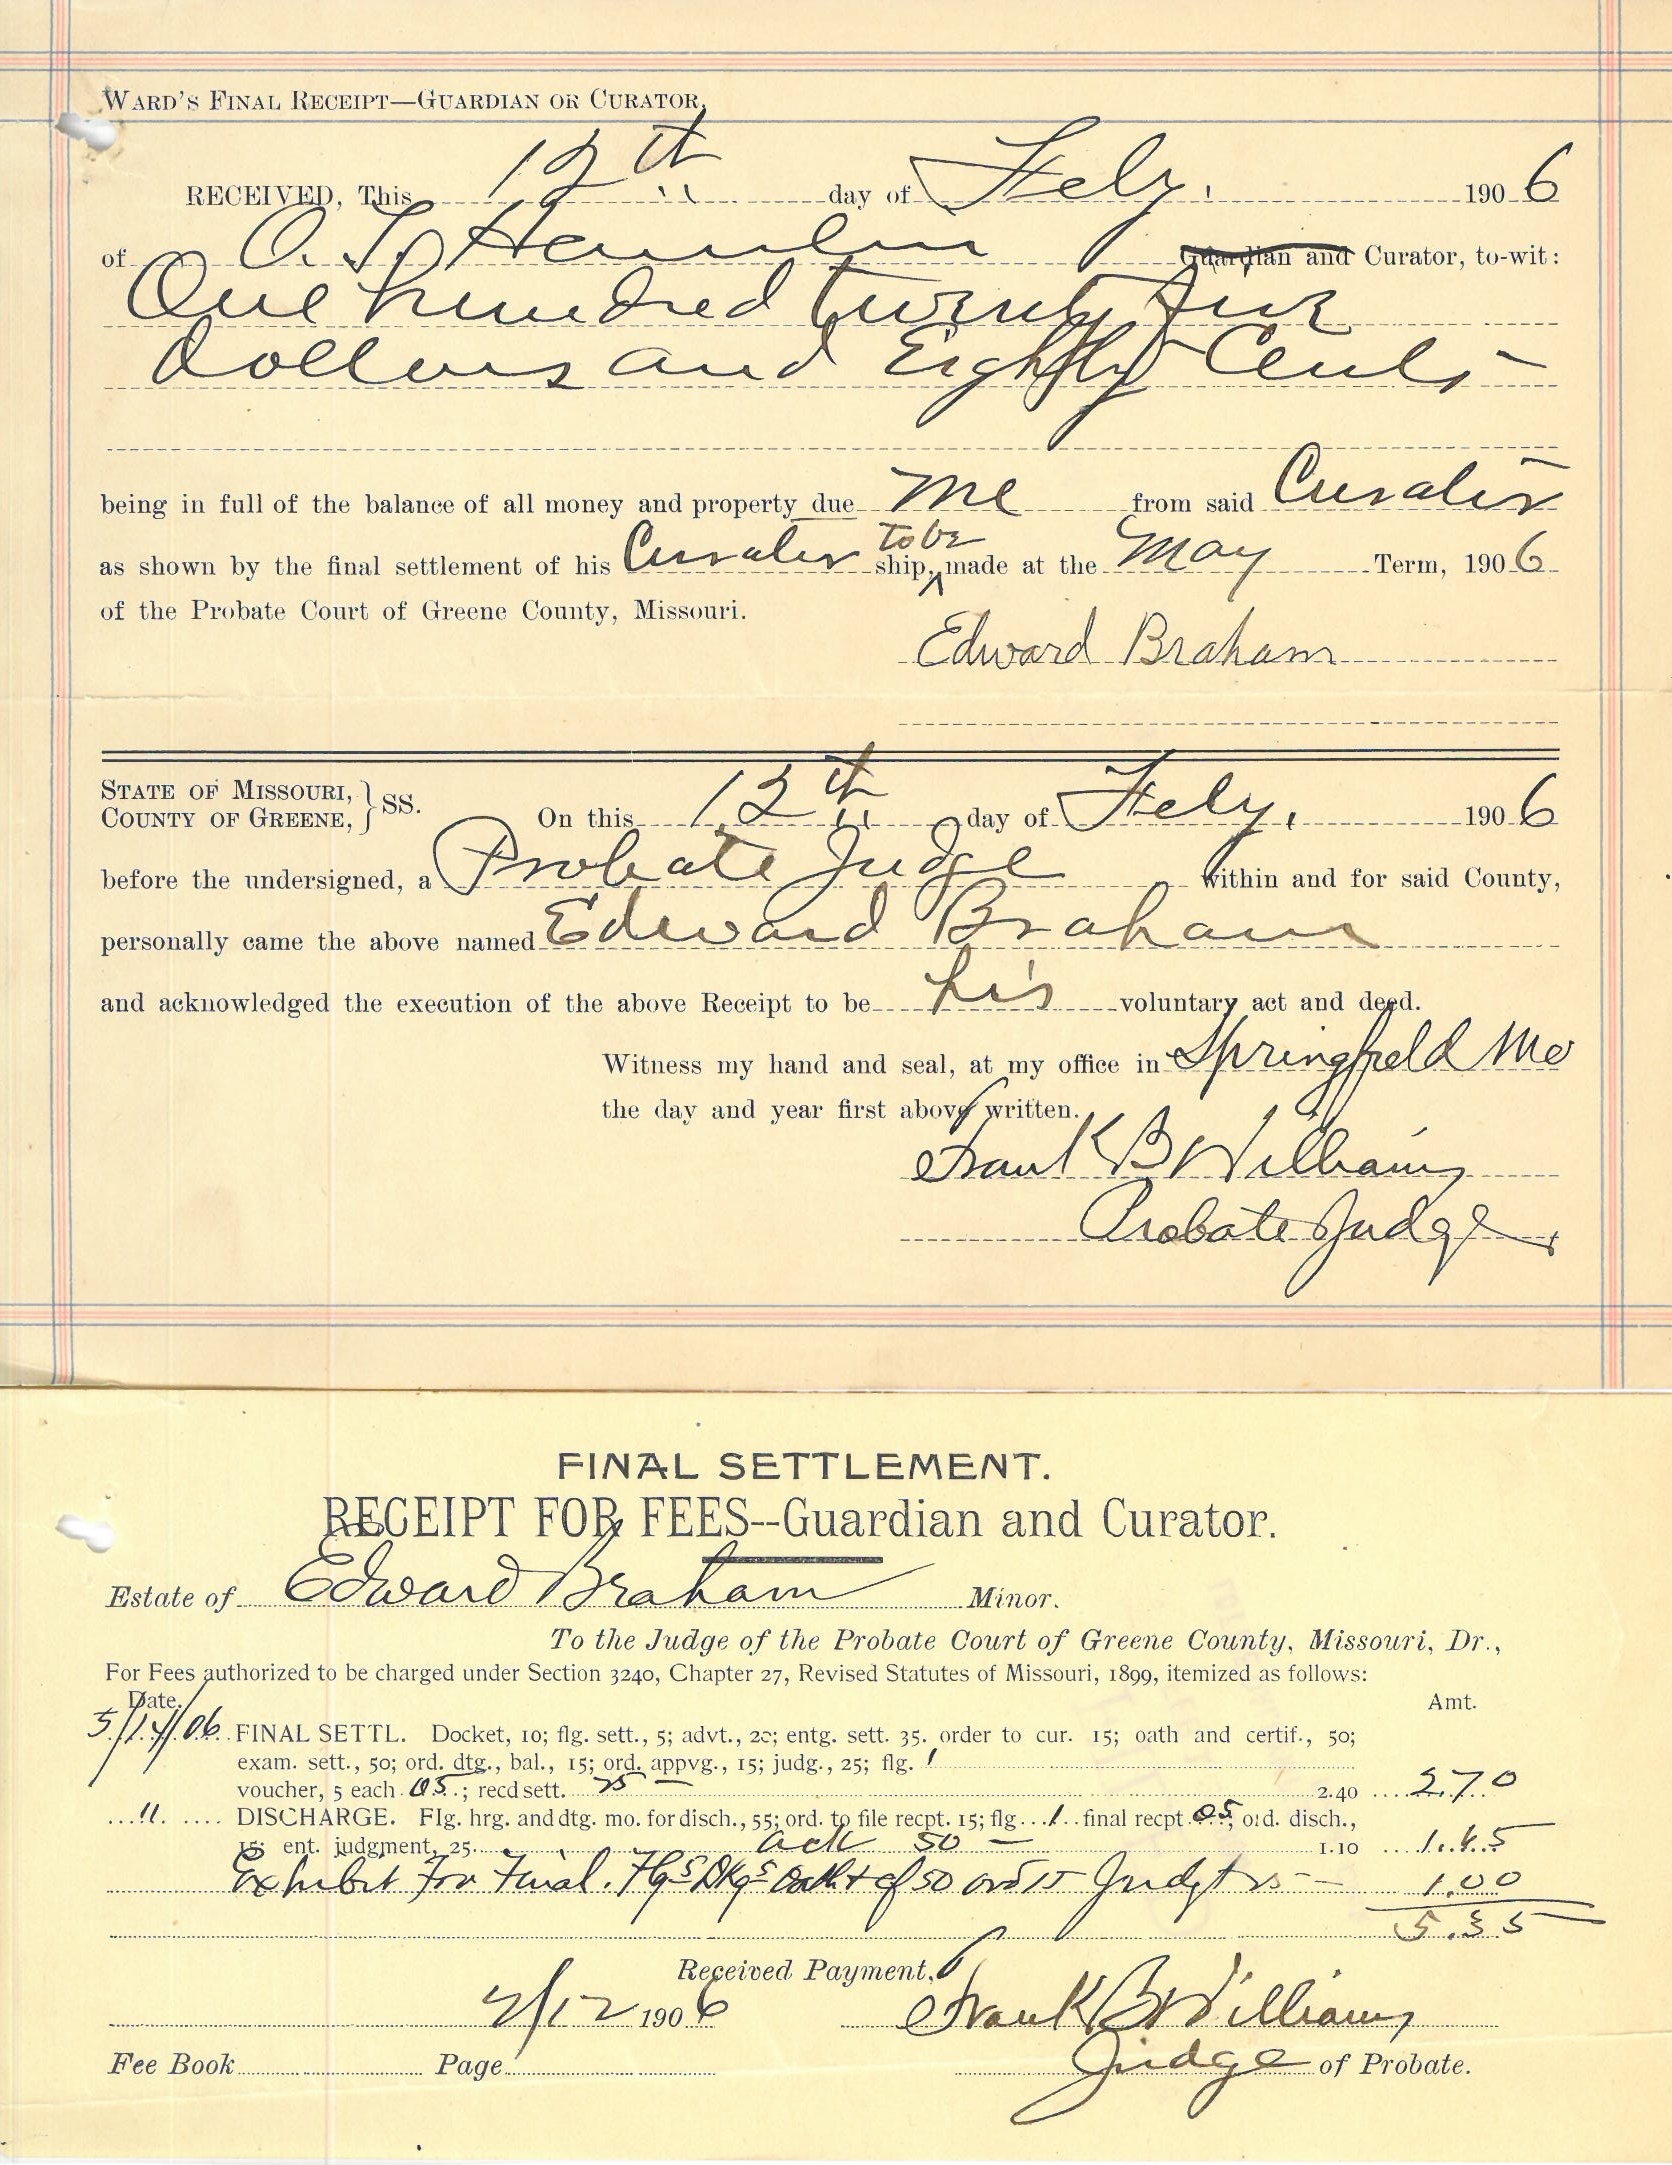 WARD'S FINAL RECEIPT—GUARDIAN OR CURATOR.
RECEIVED, This 12th day of Feby. 1906
of O. T. Hamlin Guardian and Curator, to-wit:
One hundred twenty five
Dollars and Eighty Cents
being in full of the balance of all money and property due me from said Curator
to be
as shown by the final settlement of his Curator ship, made at the May Term, 1906
of the Probate Court of Greene County, Missouri.
Edward Braham
STATE OF MISSOURI, } SS.
COUNTY OF GREENE,
On this 12th day of Feby, 1906
before the undersigned, a Probate Judge within and for said County,
personally came the above named Edward Braham
and acknowledged the execution of the above Receipt to be his voluntary act and deed.
Witness my hand and seal, at my office in Springfield Mo
the day and year first above written.
Frank B Williams
Probate Judge
FINAL SETTLEMENT.
RECEIPT FOR FEES--Guardian and Curator.
Estate of Edward Braham Minor.
To the Judge of the Probate Court of Greene County, Missouri, Dr.,
For Fees authorized to be charged under Section 3240, Chapter 27, Revised Statutes of Missouri, 1899, itemized as follows:
Date. Amt.
5/14/06 FINAL SETTL. Docket, 10; flg. sett., 5; advt., 20; entg. sett. 35. order to cur. 15; oath and certif., 50;
exam. sett., 50; ord. dtg., bal., 15; ord. appvg., 15; judg., 25; flg. 1
voucher, 5 each 05; recd sett. 25 — 2.40 2.70
" DISCHARGE. Flg. hrg. and dtg. mo. for disch., 55; ord. to file recpt. 15; flg 1 final recpt 05; ord. disch.,
15; ent. judgment, 25. ack 50 — 1.10 1.65
Exhibit For Final. Flg 5 Dkg 5 Oath + cf 50 ord 15 Judgt 25 — 1.00
5.35
Received Payment,
2/12 1906 Frank B Williams
Fee Book Page Judge of Probate.